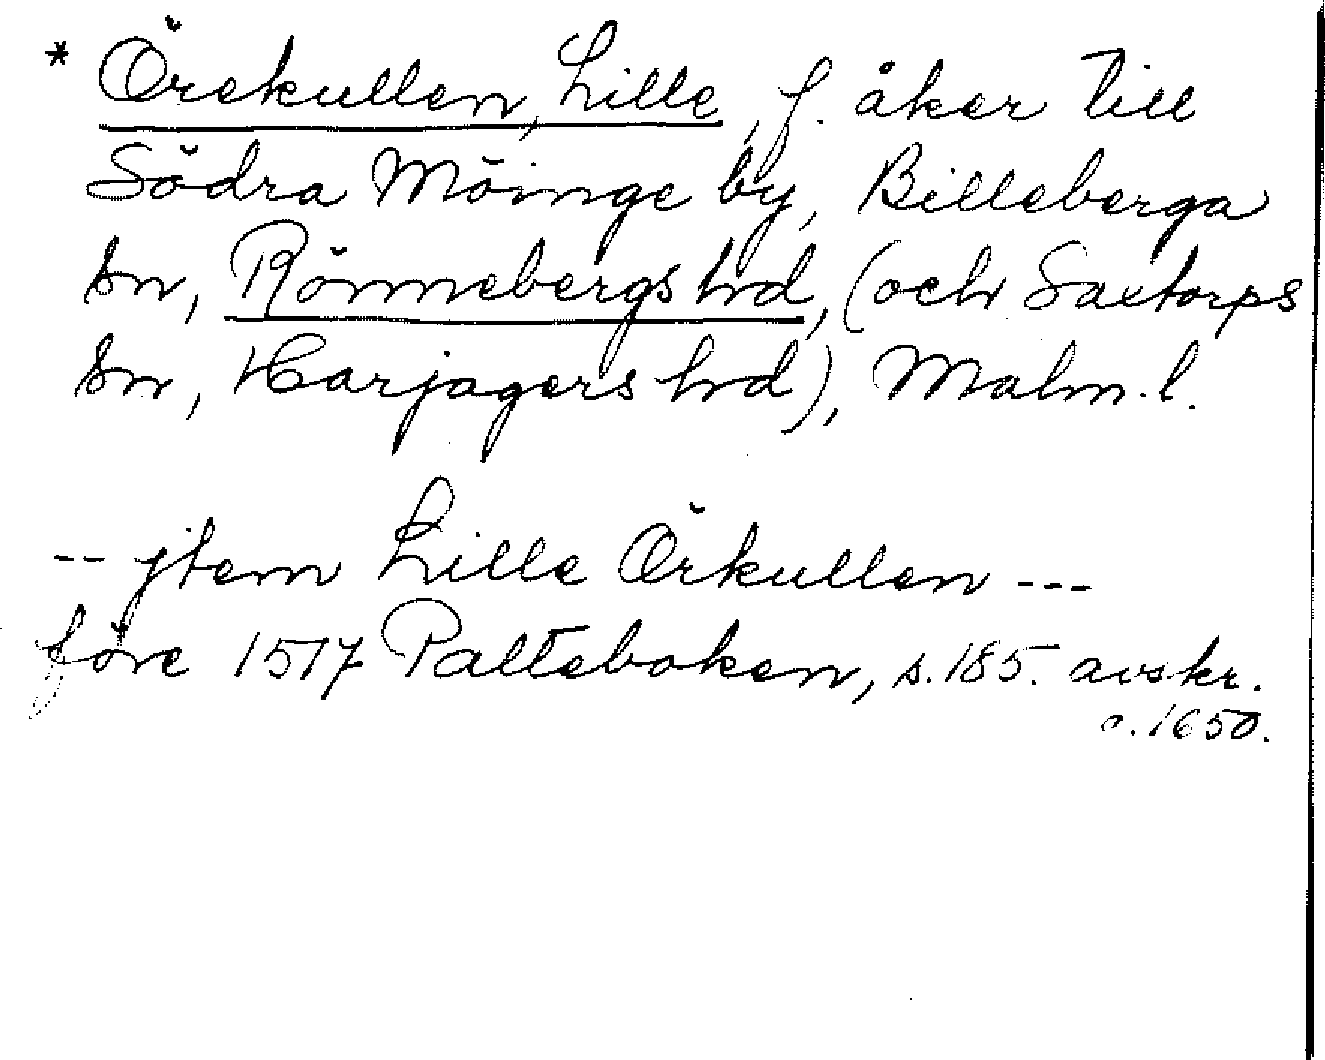 * Örekullen, Lille, f. åker till
Södra Möinge by, Billeberga
sn, Rönnebergs hd, (och Saxtorps
sn, Harjagers hd), Malm. l.
-- jtem Lille Örkullen ---
före 1517 Palteboken, s. 185. avskr.
o. 1650.